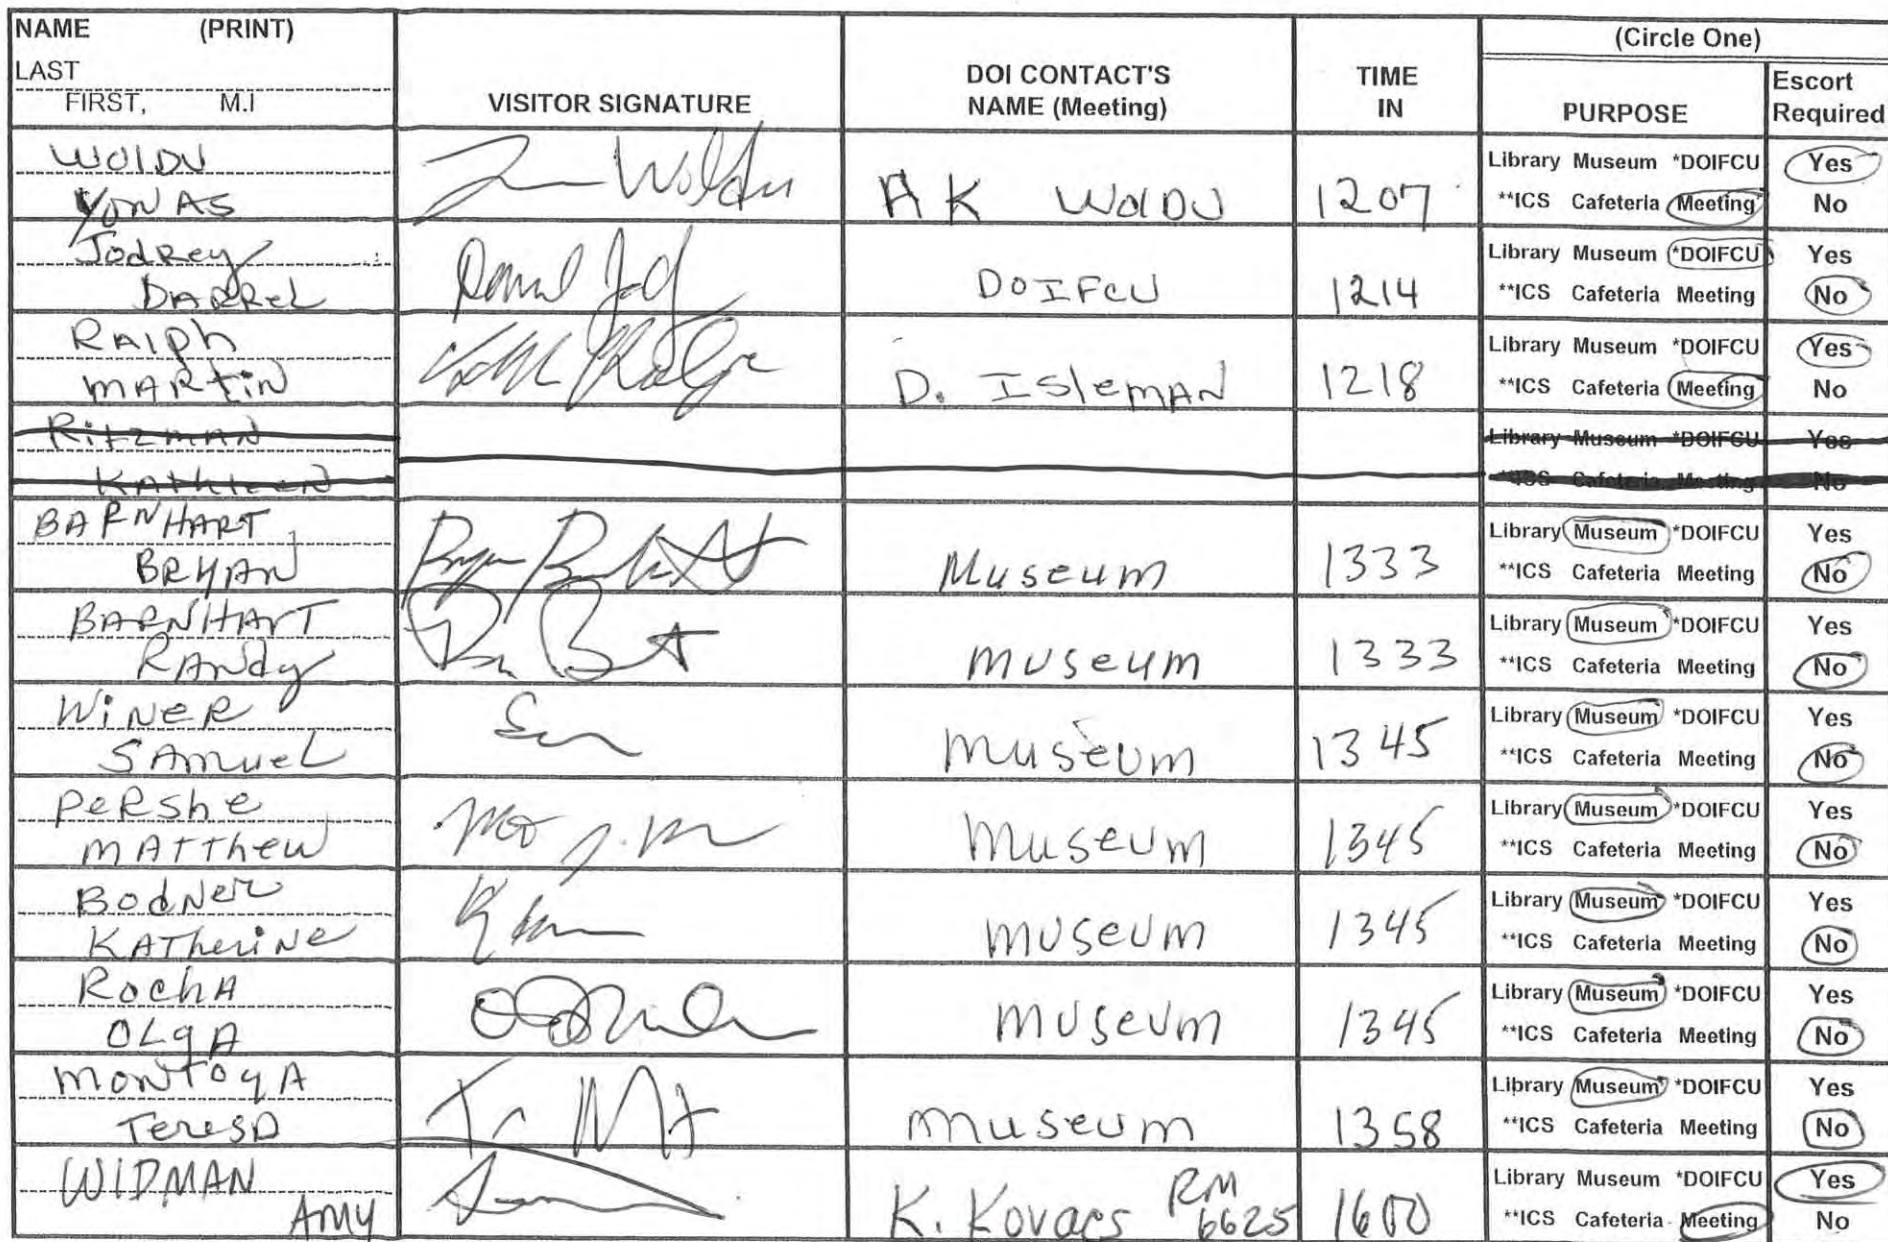 NAME (PRINT)
LAST
FIRST, M.I
VISITOR SIGNATURE
DOI CONTACT'S
NAME (Meeting)
TIME
IN
(Circle One)
PURPOSE
Escort
Required
WOldU
YONAS
Woldu
AK WOlDU
1207
Library Museum *DOIFCU Yes
**ICS Cafeteria Meeting No
JodRey
DARReL
DOIFCU
1214
Library Museum *DOIFCU Yes
**ICS Cafeteria Meeting No
RAlph
MARtiN
D. ISlemAN
1218
Library Museum *DOIFCU Yes
**ICS Cafeteria Meeting No
RitzmAN
KAthleeN
Library Museum *DOIFCU Yes
**ICS Cafeteria Meeting No
BARNHART
BRYAN
Museum
1333
Library Museum *DOIFCU Yes
**ICS Cafeteria Meeting No
BARNHArT
RANdy
museum
1333
Library Museum *DOIFCU Yes
**ICS Cafeteria Meeting No
WiNeR
SAmueL
museum
1345
Library Museum *DOIFCU Yes
**ICS Cafeteria Meeting No
PeRShe
mATThew
museum
1345
Library Museum *DOIFCU Yes
**ICS Cafeteria Meeting No
BodNer
KATheriNe
museum
1345
Library Museum *DOIFCU Yes
**ICS Cafeteria Meeting No
RochA
OLgA
museum
1345
Library Museum *DOIFCU Yes
**ICS Cafeteria Meeting No
moNToyA
TeresA
museum
1358
Library Museum *DOIFCU Yes
**ICS Cafeteria Meeting No
WIDMAN
AMY
K. Kovacs RM
6625
1600
Library Museum *DOIFCU Yes
**ICS Cafeteria Meeting No